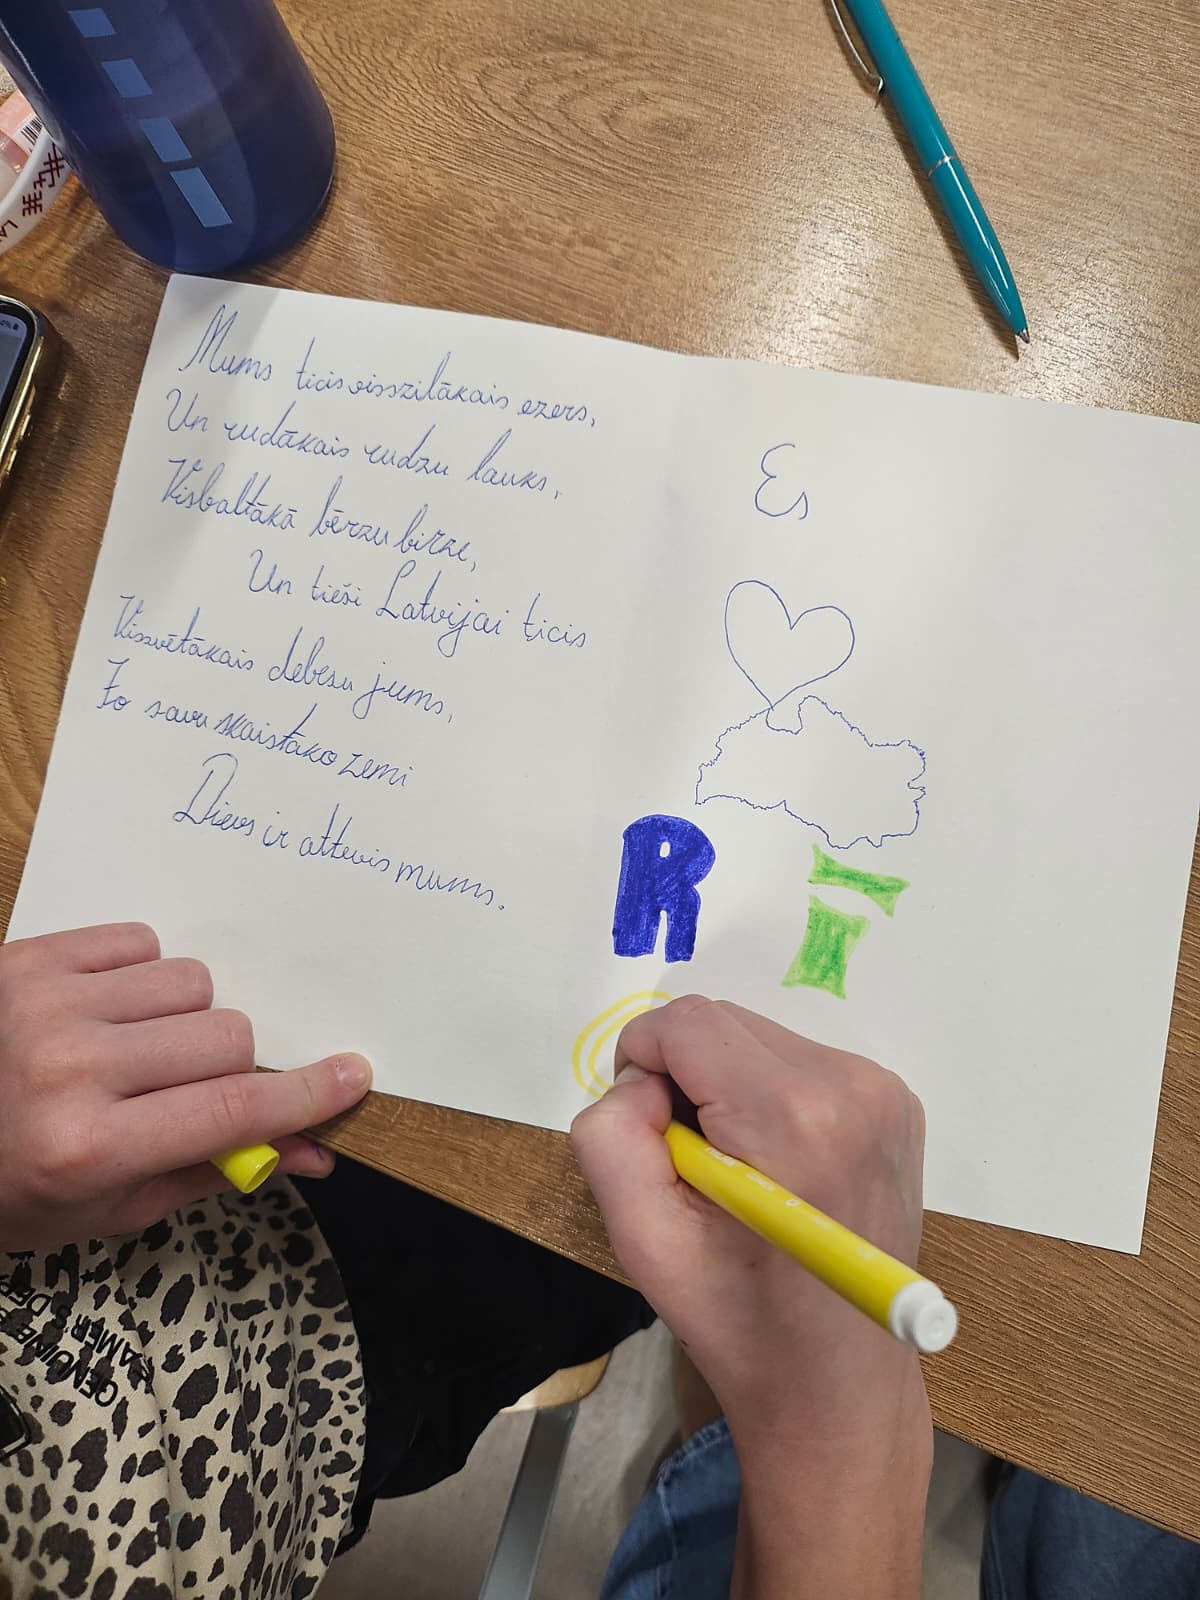 Mums ticis visszilākais ezers,
Un rudākais rudzu lauks,
Visbaltākā bērzu birze,
Un tieši Latvijai ticis
Vissvētākais debesu jums,
Jo savu skaistāko zemi
Dievs ir attevis mums.
Es
R T
GENUINE